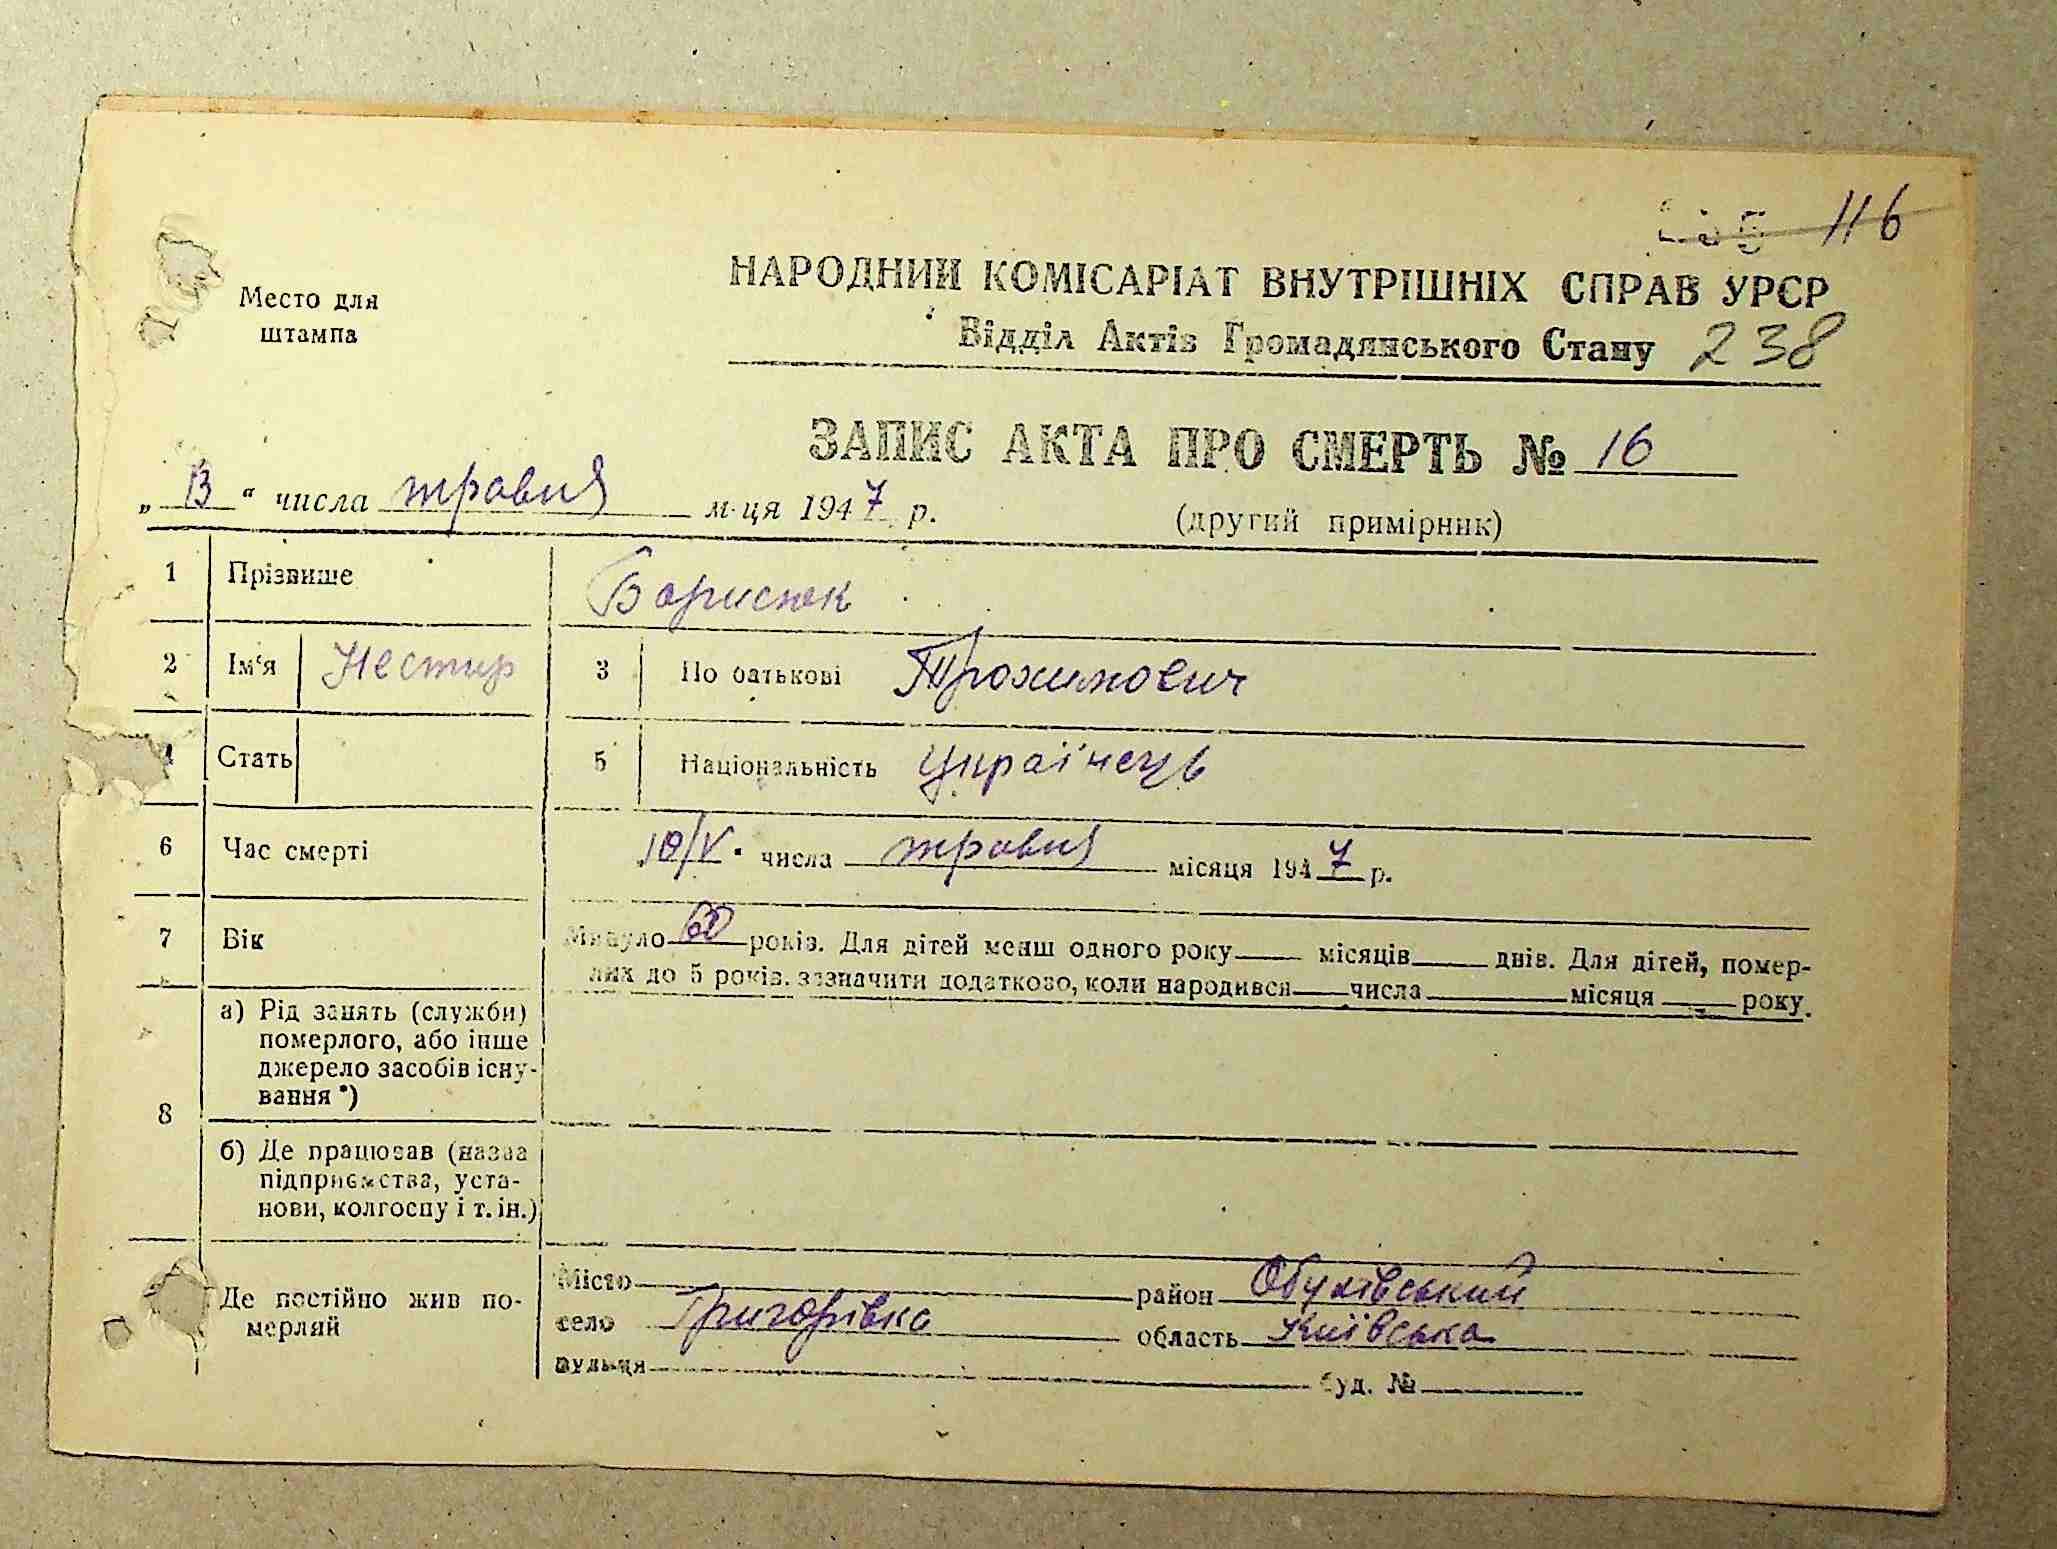 116
Место для
штампа
НАРОДНИЙ КОМІСАРІАТ ВНУТРІШНІХ СПРАВ УРСР
Відділ Актів Громадянського Стану 238
ЗАПИС АКТА ПРО СМЕРТЬ № 16
„ 13 “ числа травня м-ця 1947 р.
(другий примірник)
1 Прізвище Борисюк
2 Ім‘я Нестир 3 По батькові Трохимович
4 Стать 5 Національність Українець
6 Час смерті 10/V " числа травня місяця 1947 р.
7 Вік Минуло 60 років. Для дітей менш одного року місяців днів. Для дітей, помер-
лих до 5 років, зазначити додатково, коли народився числа місяця року.
8 а) Рід занять (служби)
померлого, або інше
джерело засобів існу-
вання *)
б) Де працював (назва
підприємства, уста-
нови, колгоспу і т. ін.)
Де постійно жив по-
мерлий
Місто район Обухівський
село Григорівка область Київська
вулиця буд. №